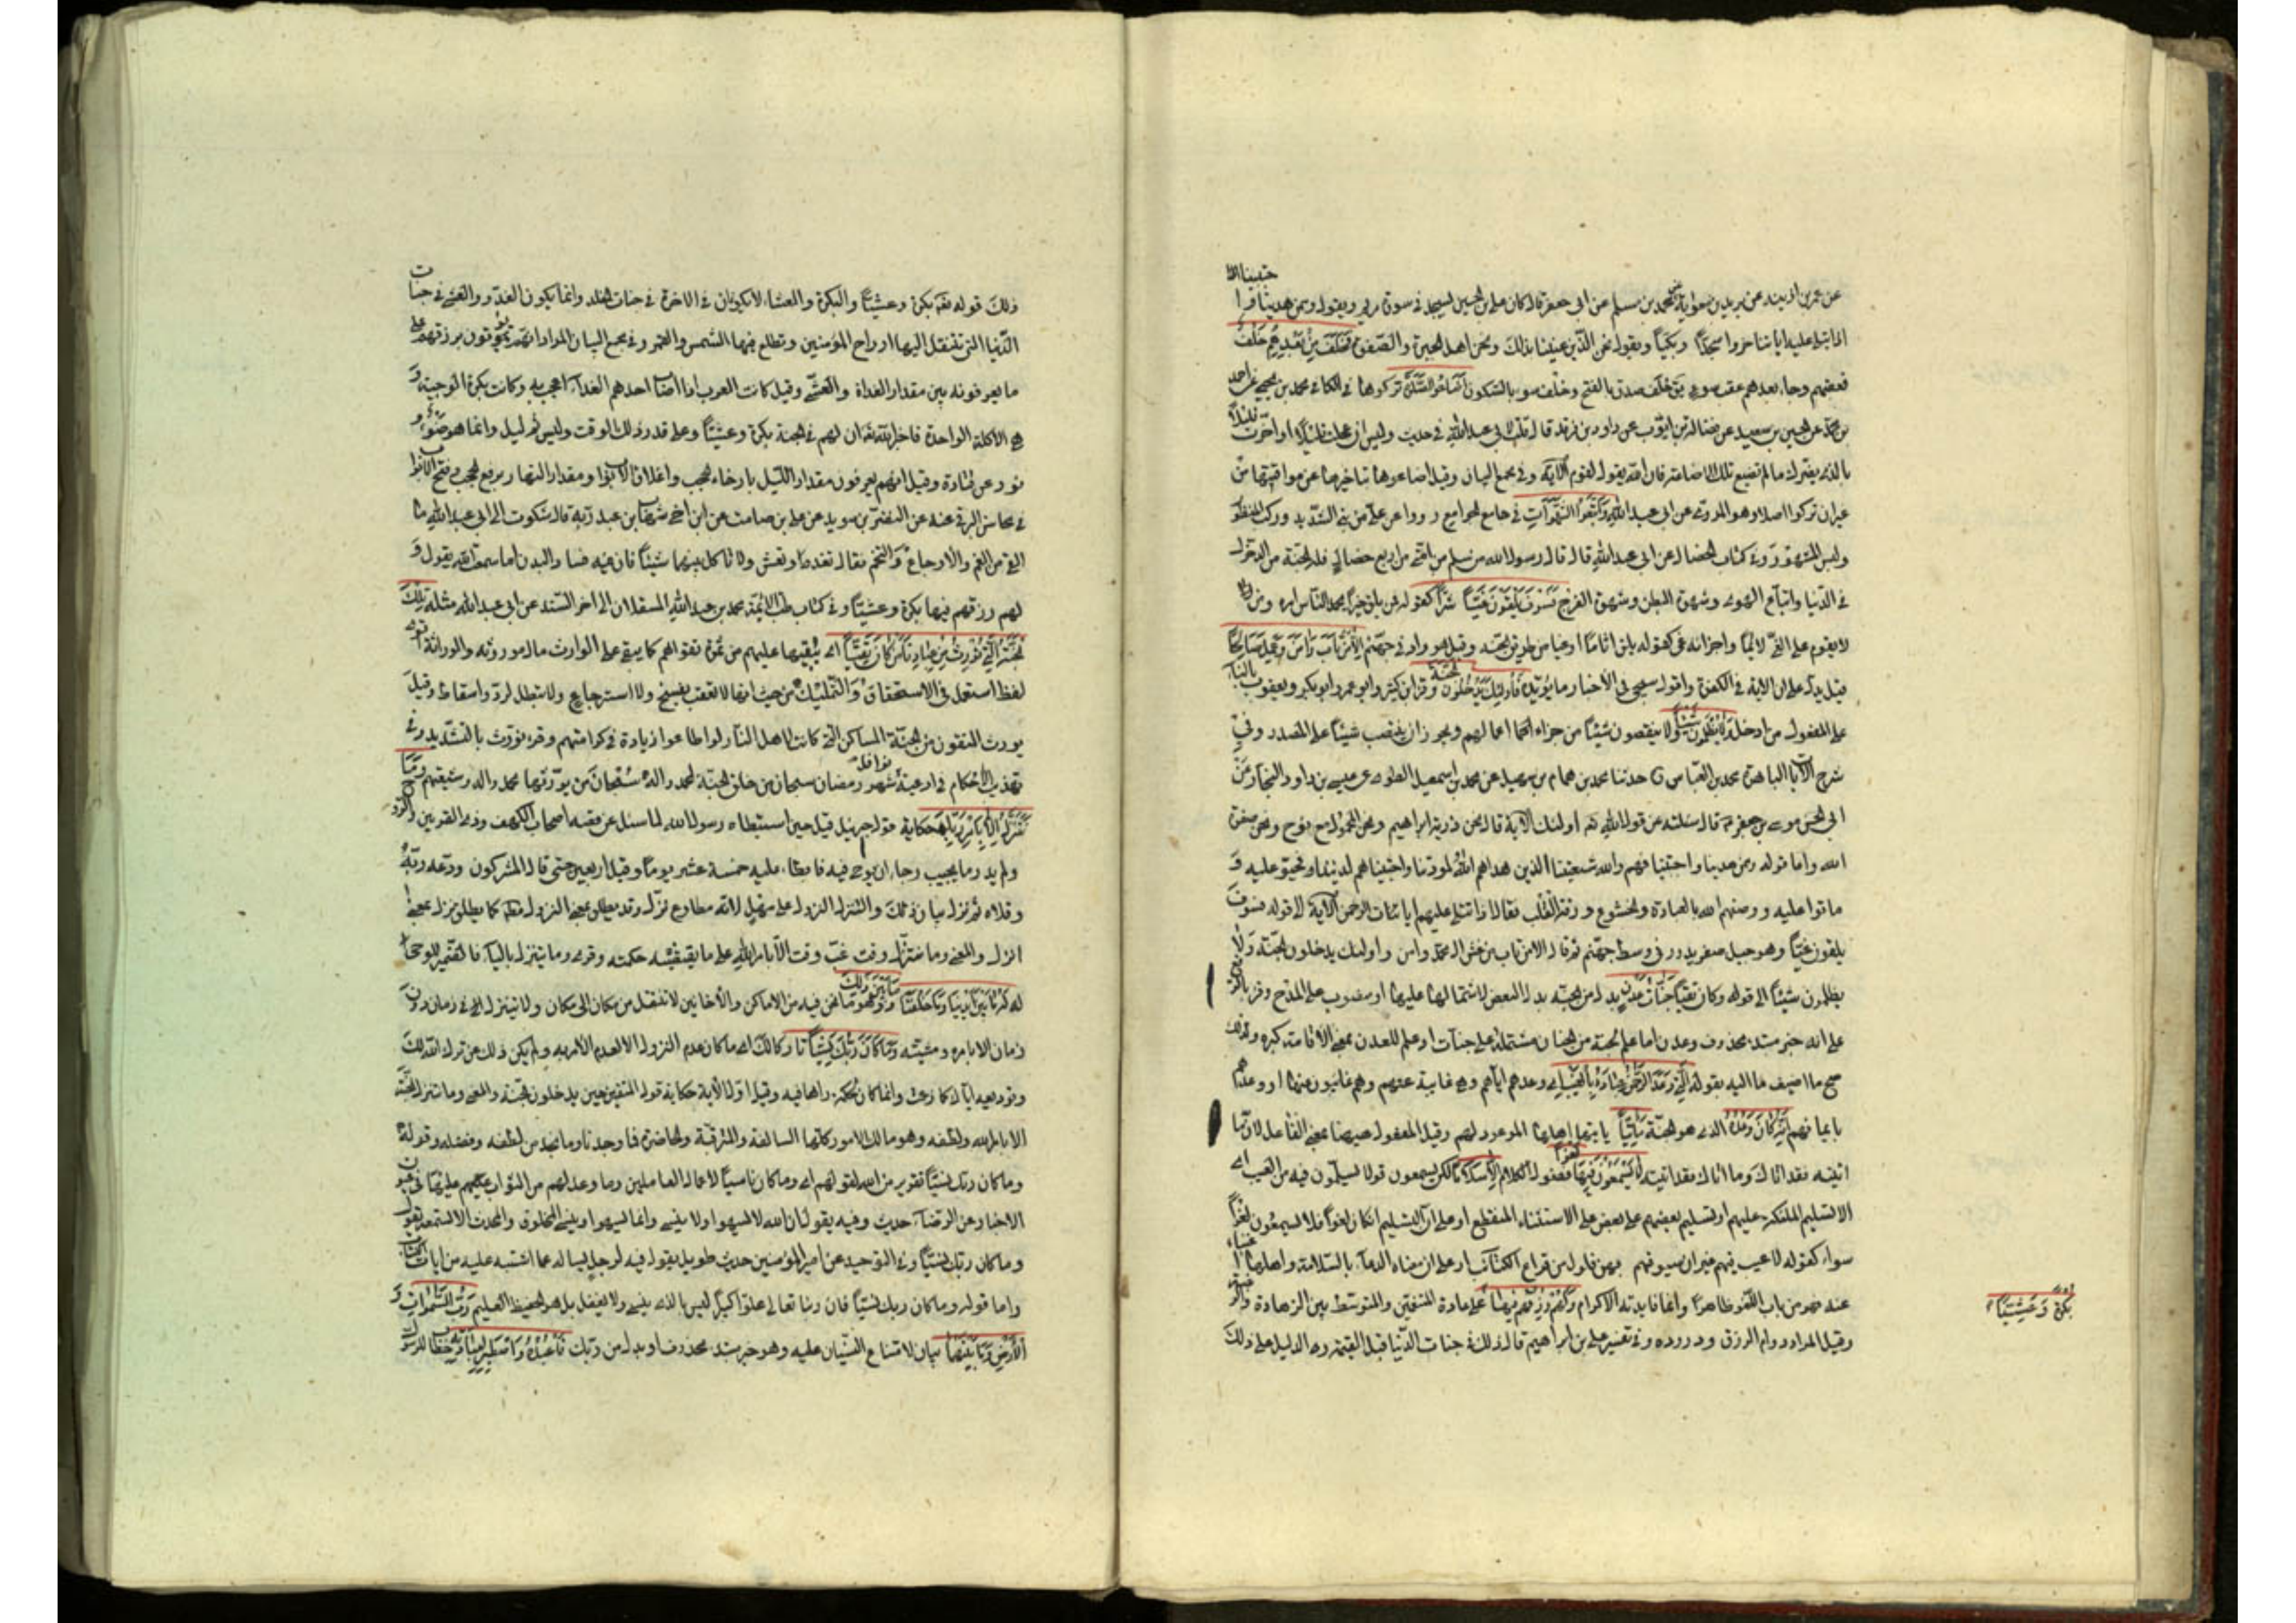 جتبينا اذا
عن عمر بن اذينه عن بريد بن معوية عن محمد بن مسلم عن ابي جعفر قال كان علي بن الحسين يسجد في سورة مريم ويقول وممن هدينا وا
اذا تتلى عليهم ايات خروا سجدًا وبكيًا ويقول نحن الذين عنينا بذلك ونحن اهل الحبوة والصفوة فخلف من بعدهم خلف
فعقبهم وجاء بعدهم عقب سوء يق خلف صدق بالفتح وخلف سوء بالسكون اضاعوا الصلوة تركوها في الكافي محمد بن يحيى عن احمد
بن محمد عن الحسين بن سعيد عن فضالة بن ايوب عن داود بن فرقد قال قلت لابي عبد الله في حديث وليس ان عجلت قليلًا او اخرت قليلًا
بالذي يضرك ما لم تضيع تلك الاضاعة فان الله يقول لقوم الآية وفي مجمع البيان وقيل اضاعوها بتاخيرها عن مواقيتها من
غير ان تركوا اصلا وهو المروي عن ابي عبد الله واتبعوا الشهوات في جامع الجوامع رووا عن علي من بنى الشديد وركب المنظور
ولبس المشهور وفي كتاب الخصال عن ابي عبد الله قال قال رسول الله من سلم من امتي من اربع خصال فله الجنة من الدخول
في الدنيا واتباع الهوى وشهوة البطن وشهوة الفرج فسوف يلقون غيًا شرًا كقوله فمن يلق خيرًا يحمد الناس امره ومن يغو
لا يعدم على الغي لائمًا او جزاء غي كقوله يلق اثامًا او غيا عن طريق الجنة وقيل هو واد في جهنم الا من تاب وامن وعمل صالحًا
قيل يدل على ان الاية في الكفرة واقول سيجي في الأخبار ما يؤيده فأولئك يدخلون الجنة وقرا ابن كثير وابو عمرو وابو بكر ويعقوب بالبناء
على المفعول من ادخل ولا يظلمون شيئًا ولا ينقصون شيئًا من جزاء اعمالهم ويجوز ان ينتصب شيئًا على المصدر وفي
شرح الآيات الباهرة محمد بن العباس حدثنا محمد بن همام بن سهيل عن محمد بن اسمعيل العلوي عن عيسى بن داود النجار عن
ابي الحسن موسى بن جعفر قال سئلته عن قول الله اولئك الآية قال نحن ذرية ابراهيم ونحن المحمولون مع نوح ونحن صفوة
الله واما قوله وممن هدينا واجتبينا فهم والله شيعتنا الذين هداهم الله لمودتنا واجتبيناهم لديننا فحيوا عليه و
ماتوا عليه ووصفهم الله بالعبادة والخشوع ورقة القلب فقال اذا تتلى عليهم ايات الرحمن الآية الى قوله فسوف
يلقون غيًا وهو جبل من صفر يدور في وسط جهنم ثم قال الا من تاب من غش ال محمد وامن واولئك يدخلون الجنة ولا
يظلمون شيئًا الى قوله وكان تقيًا جنات عدن بدل من الجنة بدل البعض لاشتمالها عليها او منصوب على المدح وقرء بالرفع
على انه خبر مبتدء محذوف وعدن اما علم لجنة من الجنان مشتملة على جنات او علم للعدن بمعنى الاقامة كبره ولذلك
صح ما اضيف اليه بقوله التي وعد الرحمن عباده بالغيب اي وعدهم اياهم وهي غايبة عنهم وهم غايبون عنها او وعدهم
بايمانهم انه كان وعده الذي هو الجنة مأتيًا ياتيها اهلها الموعود لهم وقيل المفعول هيهنا بمعنى الفاعل لان ما
اتيته فقد اتاك وما اتاك فقد اتيته لا يسمعون فيها لغوًا فضول الكلام الا سلامًا لكن يسمعون قولا يسلمون فيه من العيب اي
الا تسليم الملئكة عليهم او تسليم بعضهم على بعض على الاستثناء المنقطع او على ان التسليم ان كان لغوًا فلا يسمعون لغوًا
سواه كقوله لا عيب فيهم غير ان سيوفهم بهن فلول من قراع الكتائب او على ان معناه الدعاء بالسلامة واهلها اغنياء
عنه فهو من باب اللغو ظاهرًا وانما فايدته الاكرام ولهم رزقهم فيها على عادة المتنعمين والمتوسط بين الزهادة والرغبة
وقيل المراد دوام الرزق ودروره وفي تفسير علي بن ابراهيم قال ذلك في جنات الدنيا قبل القيمة والدليل على ذلك
بكرة وعشيًا
ذلك قوله بكرة وعشيًا والبكرة والعشاء لا يكونان في الاخرة في جنات الخلد وانما يكون الغدو والعشي في جنات
الدنيا التي تنتقل اليها ارواح المؤمنين وتطلع فيها الشمس والقمر وفي مجمع البيان المراد انهم يؤتون برزقهم على
ما يعرفونه بين مقدار الغداة والعشي وقيل كانت العرب اذا اصاب احدهم الغداء اعجب به وكانت تكره الوجبة و
هي الاكلة الواحدة فاخبر الله ان لهم في الجنة بكرة وعشيًا وعلى قدر ذلك الوقت وليس ثم ليل وانما هو ضوء و
نور عن قتادة وقيل انهم يعرفون مقدار الليل بارخاء الحجب واغلاق الابواب ومقدار النهار برفع الحجب وفتح الابواب
في محاسن البرقي عنه عن النضر بن سويد عن علي بن صامت عن ابن اخي شهاب بن عبد ربه قال شكوت الى ابي عبد الله ما
القى من الغم والاوجاع والتخم فقال تغد وتعش ولا تاكل بينهما شيئًا فان فيه فساد البدن اما سمعت الله يقول و
لهم رزقهم فيها بكرة وعشيًا وفي كتاب طب الائمة محمد بن عبد الله العسقلاني الى اخر السند عن ابي عبد الله مثله تلك
الجنة التي نورث من عبادنا من كان تقيًا اي يبقيها عليهم من ثمرة تقواهم كما يبقى على الوارث مال موروثه والوراثة اقوى
لفظ استعمل في الاستحقاق والتمليك من حيث انها لا تعقب بفسخ ولا استرجاع ولا تبطل لرد واسقاط وقيل
يورث المتقون من الجنة المساكن التي كانت لاهل النار لو اطاعوا زيادة في كرامتهم وقرء نورث بالتشديد وفي
تهذيب الاحكام في ادعية نوافل شهر رمضان سبحان من خلق الجنة لمحمد وال محمد سبحان من يورثها محمد وال محمد وشيعتهم وما
نتنزل الا بامر ربك حكاية قول جبريل قيل حين استبطاه رسول الله لما سئل عن قصة اصحاب الكهف وذي القرنين والروح
ولم يدر ما يجيب ورجا ان يوحى فيه فابطا عليه خمسة عشر يومًا وقيل اربعين حتى قال المشركون ودعه ربه
وقلاه ثم نزل بيان ذلك والتنزل النزول على مهل لانه مطاوع نزل وقد يطلق بمعنى النزول مطلقا كما يطلق نزل بمعنى
انزل والمعنى وما نتنزل وقت غب وقت الا بامر الله على ما يقتضيه حكمته وقرء وما يتنزل بالياء فالضمير للوحي
له ما بين ايدينا وما خلفنا وما بين ذلك وهو ما نحن فيه من الاماكن والأحايين لا ننتقل من مكان الى مكان ولا نتنزل في زمان دون
زمان الا بامره ومشيته وما كان ربك نسيًا تاركا لك اي ما كان عدم النزول الا لعدم الامر به ولم يكن ذلك عن ترك الله لك
وتوديعه اياك كما زعمت وانما كان لحكمة راها فيه وقيل اول الآية حكاية قول المتقين حين يدخلون الجنة والمعنى وما نتنزل الجنة
الا بامر الله ولطفه وهو مالك الامور كلها السالفة والمترقبة والحاضرة فما وجدناه وما نجد من لطفه وفضله وقوله
وما كان ربك نسيًا تقرير من الله لقولهم اي وما كان ناسيًا لاعمال العاملين وما وعد لهم من الثواب عليها في عيون
الاخبار عن الرضا حديث وفيه يقول ان الله لا يسهو ولا ينسى وانما يسهو وينسى المخلوق والمحدث الا تسمعه يقول
وما كان ربك نسيًا وفي التوحيد عن امير المؤمنين حديث طويل يقول فيه لرجل يساله عما اشتبه عليه من ايات الكتاب
واما قوله وما كان ربك نسيًا فان ربنا تعالى علوًا كبيرًا ليس بالذي ينسى ولا يغفل بل هو الحفيظ العليم رب السموات و
الأرض وما بينهما بيان لامتناع النسيان عليه وهو خبر مبتدء محذوف او بدل من ربك فاعبده واصطبر لعبادته خطاب للرسول